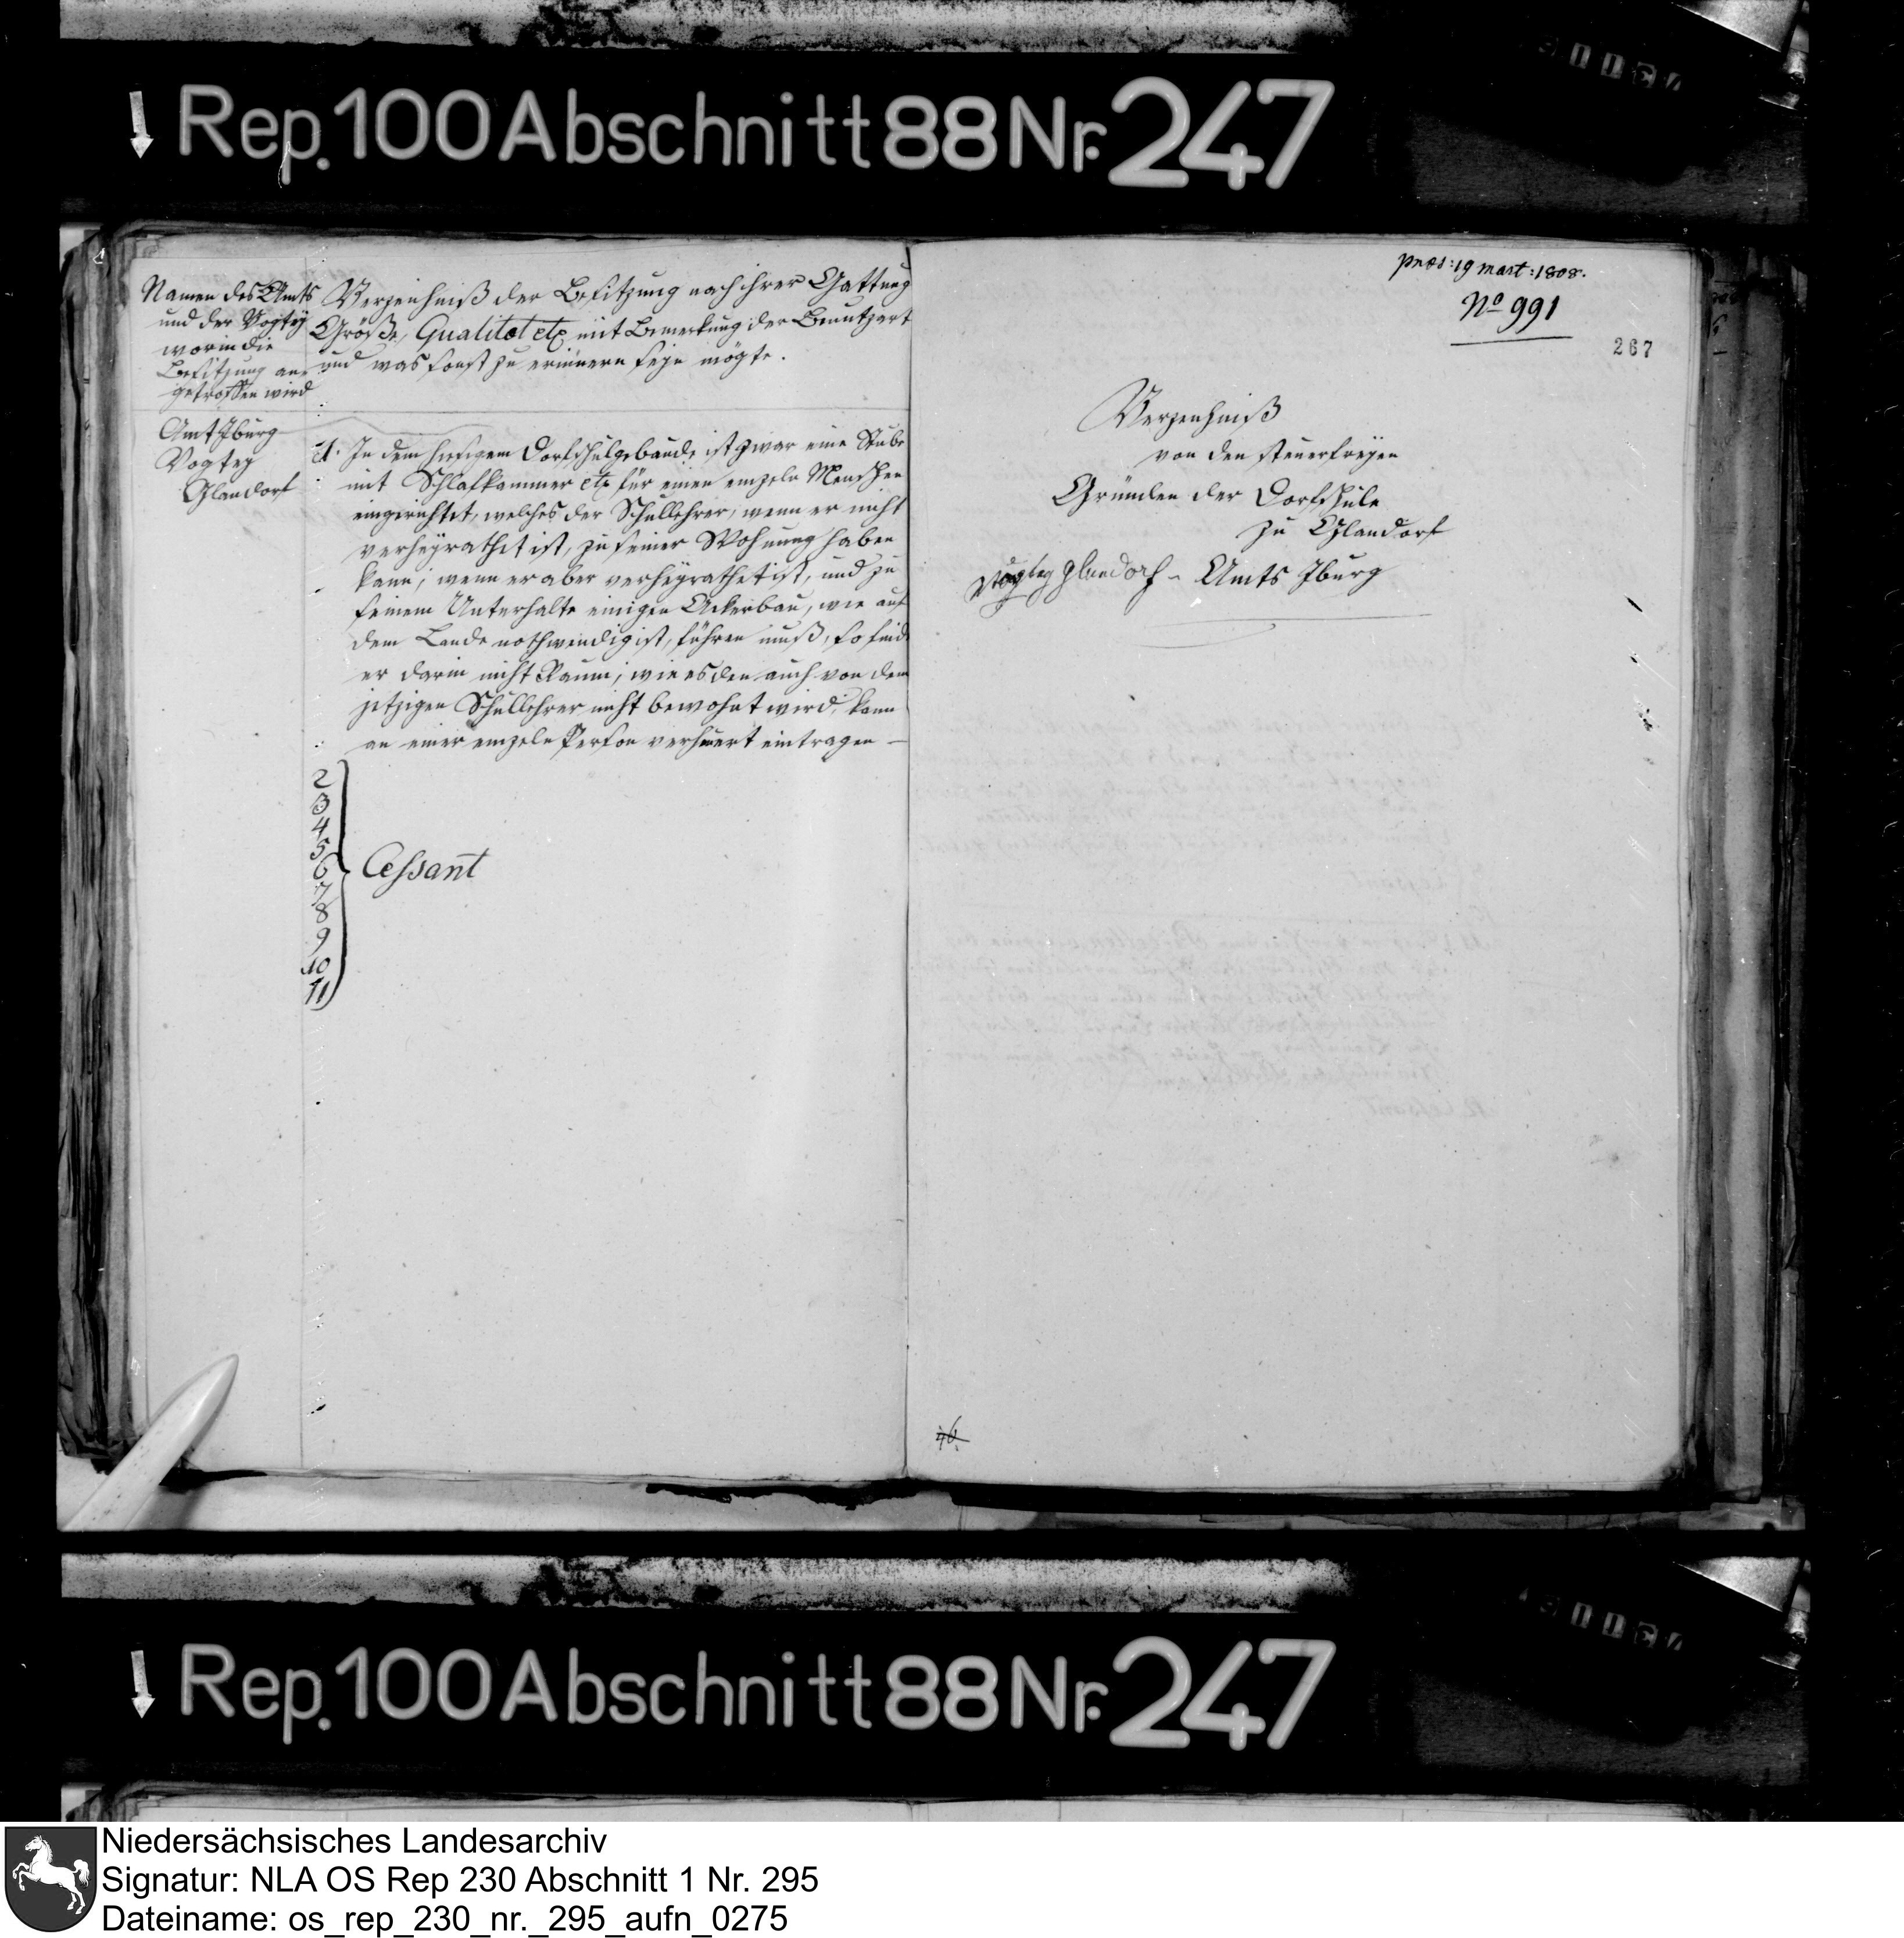 Rep. 100 Abschnitt 88 Nr. 247
Namen des Amts
und der Vogtey
worin die
Besitzung an-
getroffen wird
Verzeichniß der Besitzung nach ihrer Gattung
Größe, Qualitet etc mit Bemerkung der Benutzart
und was sonst zu erinnern seyn mögte.
Amt Iburg
Vogtey
Glandorf
1. In dem hiesigem Dorfschulgebäude ist zwar eine Stube
mit Schlafkammer etc für einen einzeln Menschen
eingerichtet, welches der Schullehrer, wenn er nicht
verheyrathet ist, zu seiner Wohnung haben
kann; wenn er aber verheyrathet ist, und zu
seinem Unterhalte einigen Ackerbau, wie auf
dem Lande nothwendig ist, führen muß, so find
er darin nicht Raum; wie es den auch von dem
jetzigen Schullehrer nicht bewohnt wird, kann
an einer einzeln Person verheuert eintragen —
2
3
4
5
6
7
8
9
10
11
Cessant
praes: 19 mart: 1808.
No 991
267
Verzeichniß
von den steuerfreyen
Gründen der Dorfschule
zu Glandorf
Vogtey Glandorf - Amts Iburg
Rep. 100 Abschnitt 88 Nr. 247
Niedersächsisches Landesarchiv
Signatur: NLA OS Rep 230 Abschnitt 1 Nr. 295
Dateiname: os_rep_230_nr._295_aufn_0275